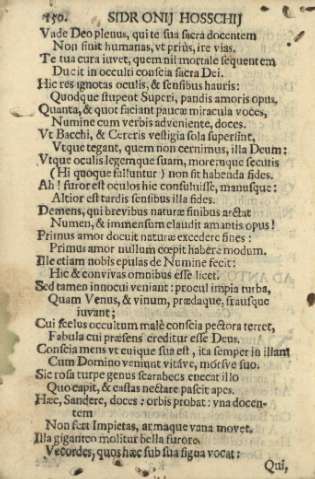 150. SIDRONII HOSSCHII
Vade Deo plenus, qui te sua sacra docentem
Non sivit humanas, vt priùs, ire vias.
Te tua cura iuvet, quem nil mortale sequentem
Ducit in occulti conscia sacra Dei.
Hic res ignotas oculis, & sensibus hauris:
Quodque stupent Superi, pandis amoris opus.
Quanta, & quot faciant paucæ miracula voces,
Numine cum verbis adveniente, doces.
Vt Bacchi, & Cereris vestigia sola supersint,
Vtque tegant, quem non cernimus, illa Deum:
Vtque oculis legemque suam, moremque secutis
(Hi quoque falluntur) non sit habenda fides.
Ah! furor est oculos hîc consuluisse, manusque:
Altior est tardis sensibus illa fides.
Demens, qui brevibus naturæ finibus arctat
Numen, & immensum claudit amantis opus!
Primus amor docuit naturæ excedere fines:
Primus amor nullum cœpit habere modum.
Ille etiam nobis epulas de Numine fecit:
Hic & convivas omnibus esse licet.
Sed tamen innocui veniant: procul impia turba,
Quam Venus, & vinum, prædaque, frausque
iuvant;
Cui scelus occultum malè conscia pectora terret,
Fabula cui præsens creditur esse Deus.
Conscia mens vt cuique sua est, ita semper in illam
Cum Domino veniunt vitáve, morsve suo.
Sic rosa turpe genus scarabeos enecat illo
Quo capit, & castas nectare pascit apes.
Hæc, Sandere, doces: orbis probat: vna docen-
tem
Non fert Impietas, armaque vana movet.
Illa giganteo molitur bella furore.
Vecordes, quos hæc sub sua signa vocat:
Qui,